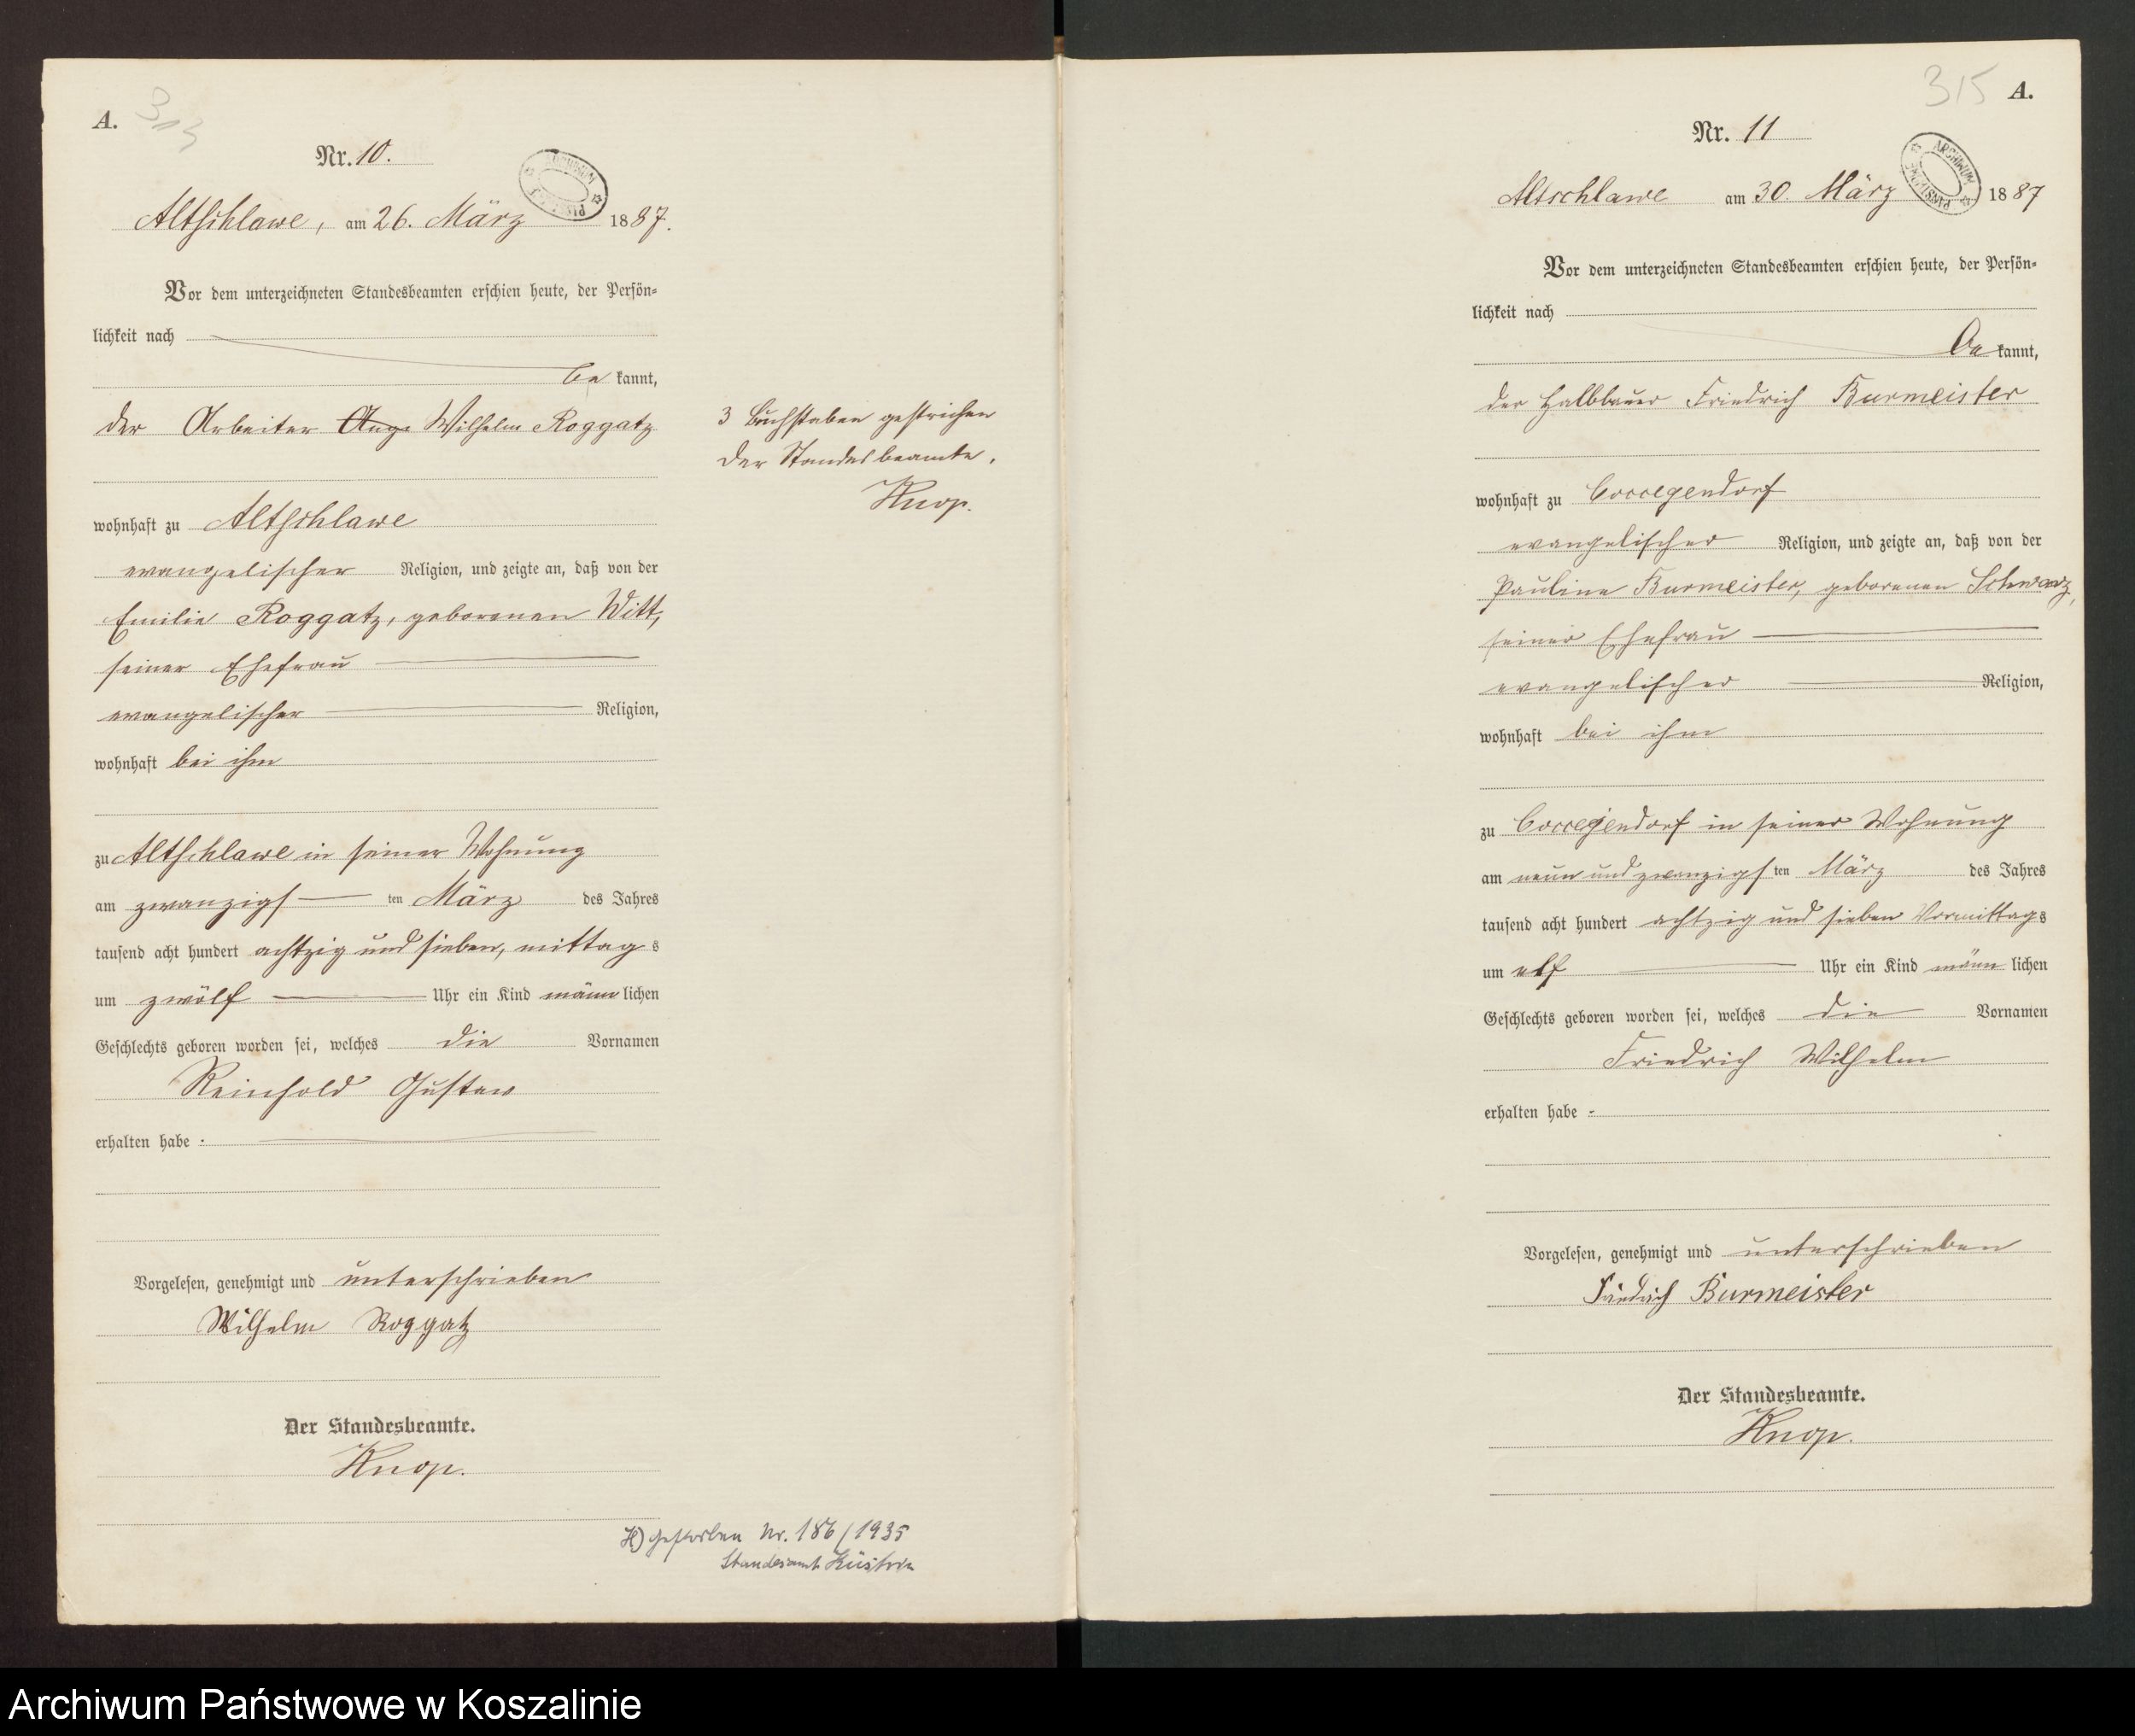 A.
313
Nr. 10.
ARCHIWUM PAŃSTWOWE
Altschlawe, am 26. März 1887.
Vor dem unterzeichneten Standesbeamten erschien heute, der Persön-
lichkeit nach
be kannt,
der Arbeiter Aug. Wilhelm Roggatz
wohnhaft zu Altschlawe
evangelischer Religion, und zeigte an, daß von der
Emilie Roggatz, geborenen Witt,
seiner Ehefrau
evangelischer Religion,
wohnhaft bei ihm
zu Altschlawe in seiner Wohnung
am zwanzigs ten März des Jahres
tausend acht hundert achtzig und sieben, mittag s
um zwölf Uhr ein Kind männ lichen
Geschlechts geboren worden sei, welches die Vornamen
Reinhold Gustav
erhalten habe.
Vorgelesen, genehmigt und unterschrieben
Wilhelm Roggatz
Der Standesbeamte.
Knop.
3 Buchstaben gestrichen
Der Standesbeamte.
Knop.
H) Gestorben Nr. 186/1935
Standesamt Küstrin
315
A.
Nr. 11
ARCHIWUM PAŃSTWOWE
Altschlawe am 30. März 1887
Vor dem unterzeichneten Standesbeamten erschien heute, der Persön-
lichkeit nach
be kannt,
der Halbbauer Friedrich Burmeister
wohnhaft zu Coccejendorf
evangelischer Religion, und zeigte an, daß von der
Pauline Burmeister, geborenen Schwarz,
seiner Ehefrau
evangelischer Religion,
wohnhaft bei ihm
zu Coccejendorf in seiner Wohnung
am neun und zwanzigs ten März des Jahres
tausend acht hundert achtzig und sieben Vormittag s
um elf Uhr ein Kind männ lichen
Geschlechts geboren worden sei, welches die Vornamen
Friedrich Wilhelm
erhalten habe.
Vorgelesen, genehmigt und unterschrieben
Friedrich Burmeister
Der Standesbeamte.
Knop.
Archiwum Państwowe w Koszalinie